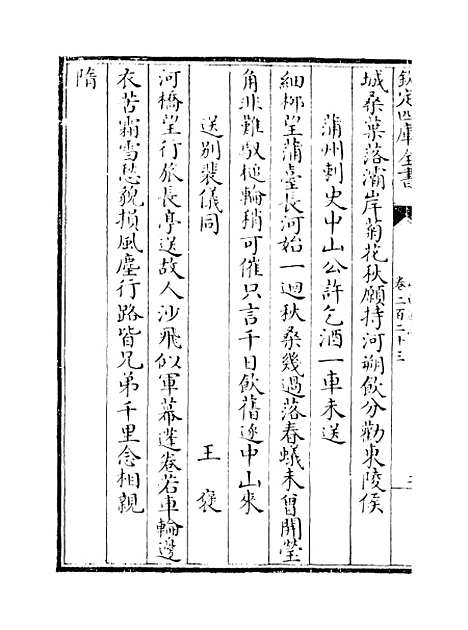 欽定四庫全書
卷二百二十三
城桑葉落滿岸菊花秋願持河朔飲分勸東陵侯
蒲州刺史中山公許乞酒一車未送
細柳望蒲臺長河始一迴秋桑幾過落春蟻未曾開瑩
角非難馭槌輪稍可催只言千日飲舊逐中山來
送別裴儀同
王褒
河橋望行旅長亭送故人沙飛似軍幕蓬卷若車輪邊
衣苦霜雪愁貌損風塵行路皆兄弟千里念相親
隋